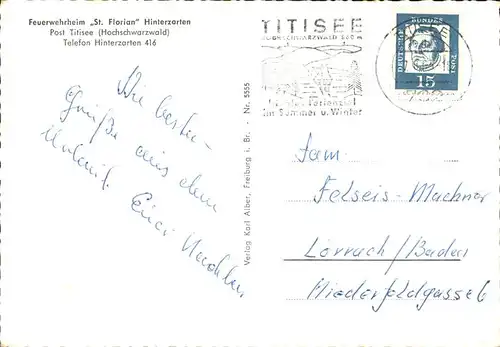 Feuerwehrheim „St. Florian" Hinterzarten
Post Titisee (Hochschwarzwald)
Telefon Hinterzarten 416
Die besten
Grüße aus dem
Urlaub.
Verlag Karl Alber, Freiburg i. Br. - Nr. 5555
TITISEE
HOCHSCHWARZWALD 860 m
Ferienziel
im Sommer u. Winter
DEUTSCHE BUNDESPOST
15
Fam.
Felseis-Machner
Lörrach/Baden
Niederfeldgasse 6